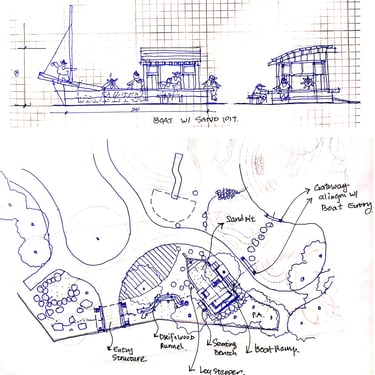 BOAT W/ SAND PIT.
Gateway
aligni w/
Boat Entry
Sandpit
P.A.
Entry
Structure
Driftwood
Runnel.
Seating
bench
Boat Ramp.
Log Stepper.